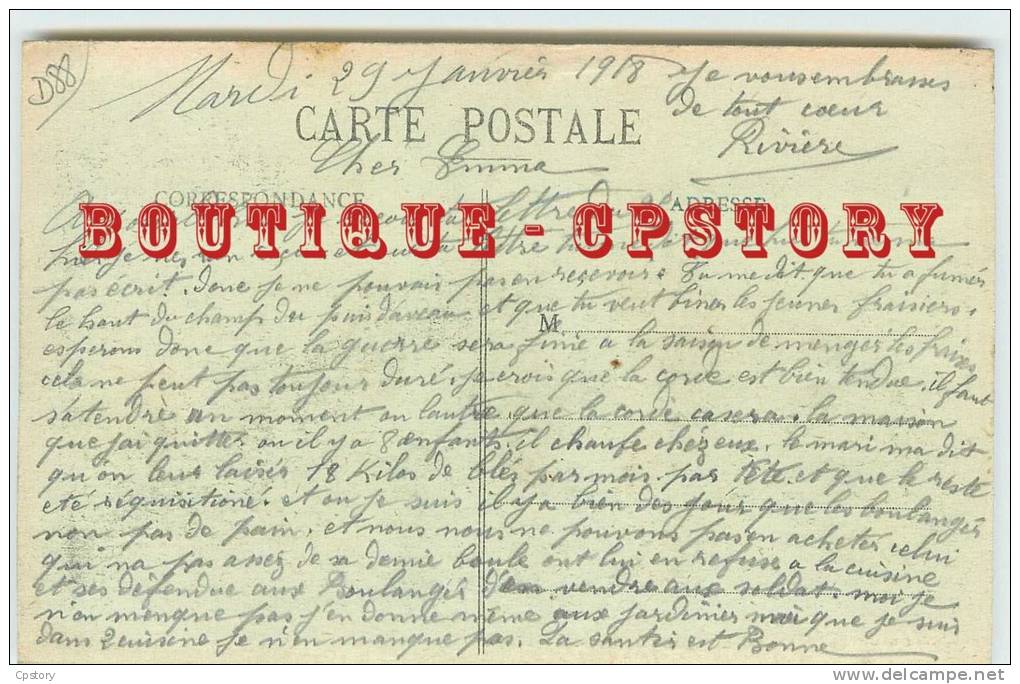 D88
Mardi 29 Janvier 1918
Je vousembrasses
de tout cœur
Rivière
CARTE POSTALE
Cher Emma
CORRESPONDANCE
ADRESSE
lettre du
BOUTIQUE - CPSTORY
pas écrit. donc je ne pouvais pas en reçevoir. Tu me dit que tu a fumér
le haut du champ du puis daveau et que tu veut biner les jeunes fraisiers.
M
esperons donc que la guerre sera finie a la saison de menger les fraises
cela ne peut pas toujour duré. je crois que la corde est bien tendue. il faut
satendre un moment ou lautre que la corde casera. la maison
que jai quitter ou il y a 8 enfants. il chaufe chézeux. le mari ma dit
qu'on leur laisér 18 Kilos de bléz par mois. par tète. et que le reste
eté réquisitioné. et ou je suis il y a bien des jour que les boulangér
non pas de pain. et nous nous ne pouvons pas en acheter. celui
qui na pas assez de sa demie boule ont lui en refuse a la cuisine
et ses défendue aux Boulangér d'en vendre aux soldat. moi je
n'en menque pas j'en donne mème aux jardinier moi que je suis
dans 2 cuisine je n'en manque pas. La santér est Bonne
Cpstory
www.delcampe.net